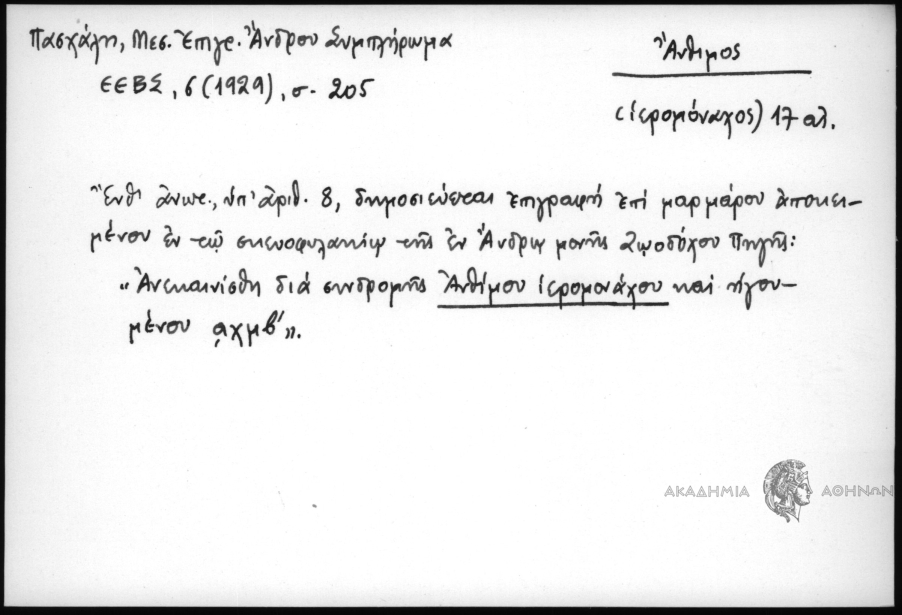 Πασχάλη, Μεσ. Ἐπιγρ. Ἄνδρου Συμπλήρωμα
ΕΕΒΣ, 6 (1929), σ. 205
Ἄνθιμος
(ἱερομόναχος) 17 αἰ.
Ἔνθ' ἀνωτ., ὑπ' ἀριθ. 8, δημοσιεύεται ἐπιγραφή ἐπί μαρμάρου ἀποκει-
μένου ἐν τῷ σκευοφυλακίῳ τῆς ἐν Ἄνδρῳ μονῆς Ζῳοδόχου Πηγῆς:
"Ἀνεκαινίσθη διά συνδρομῆς Ἀνθίμου ἱερομονάχου καί ἡγου-
μένου ͵αχμβ'".
ΑΚΑΔΗΜΙΑ ΑΘΗΝΩΝ